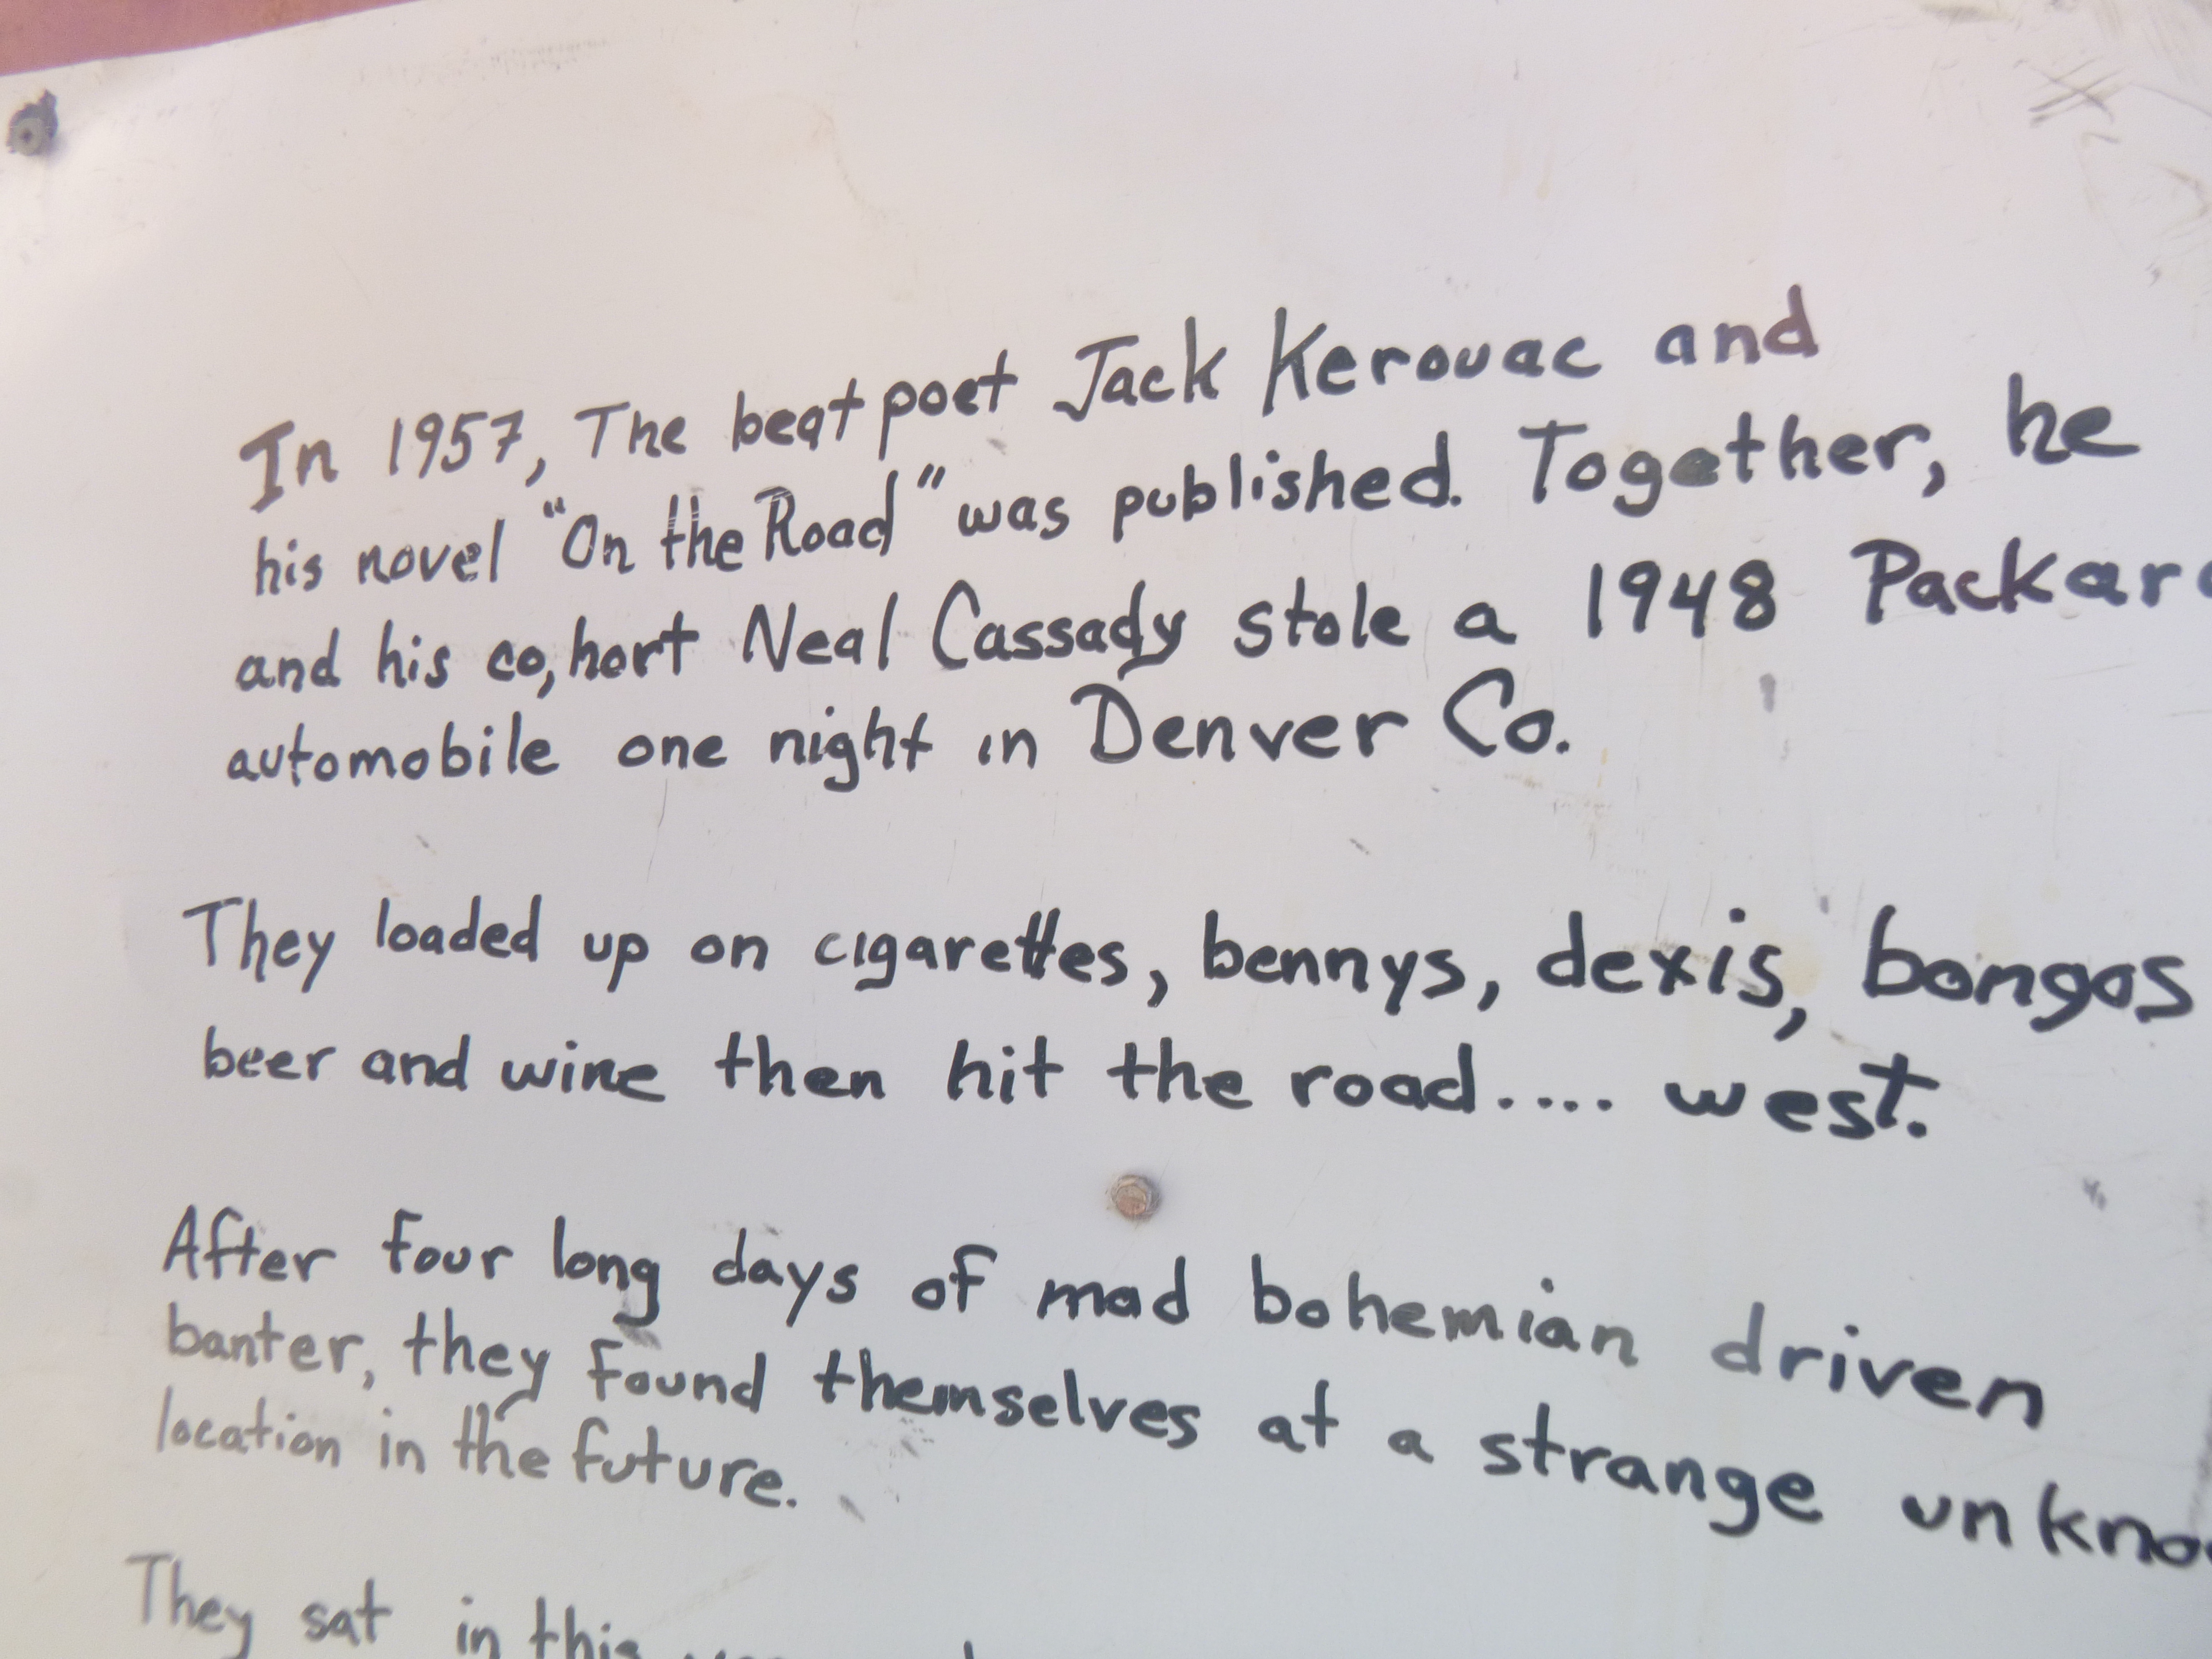 In 1957, The beat poet Jack Kerouac and
his novel "On the Road" was published. Together, he
and his co,hort Neal Cassady stole a 1948 Packar
automobile one night in Denver Co.
They loaded up on cigarettes, bennys, dexis, bongos
beer and wine then hit the road.... west.
After four long days of mad bohemian driven
banter, they found themselves at a strange unkno
location in the future.
They sat in this